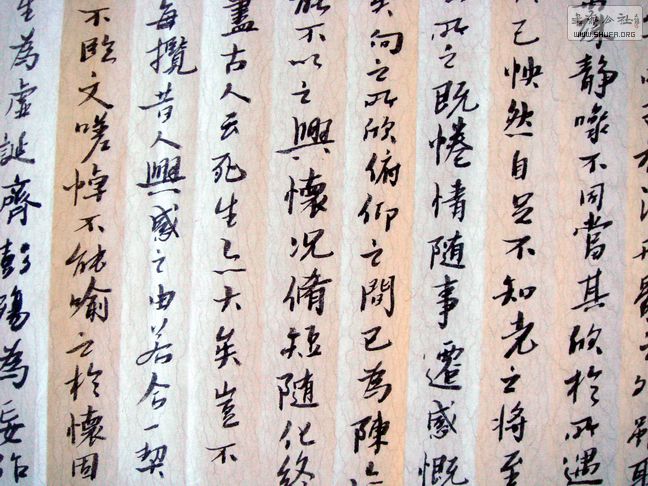 静噪不同當其欣於所遇
己怏然自足不知老之将至
所之既惓情随事遷感慨
矣向之所欣俯仰之間已為陳迹
能不以之興懷况脩短随化終
盡古人云死生亦大矣豈不
每攬昔人興感之由若合一契
不臨文嗟悼不能喻之於懷固
生為虛誕齊彭殤為妄作
書法公社
WWW.SHUFA.ORG